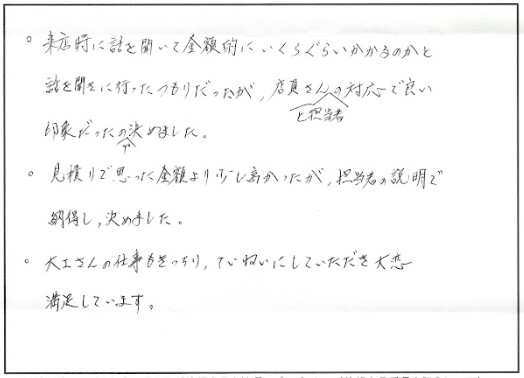 。来店時に話を聞いて金額的にいくらぐらいかかるのかと
話を聞きに行ったつもりだったが、店員さんの対応で良い
と担当者
印象だったの決めました。
で
。見積りで思った金額より少し高かったが、担当者の説明で
納得し、決めました。
。大工さんの仕事もきっちり、ていねいにしていただき大恋
満足しています。